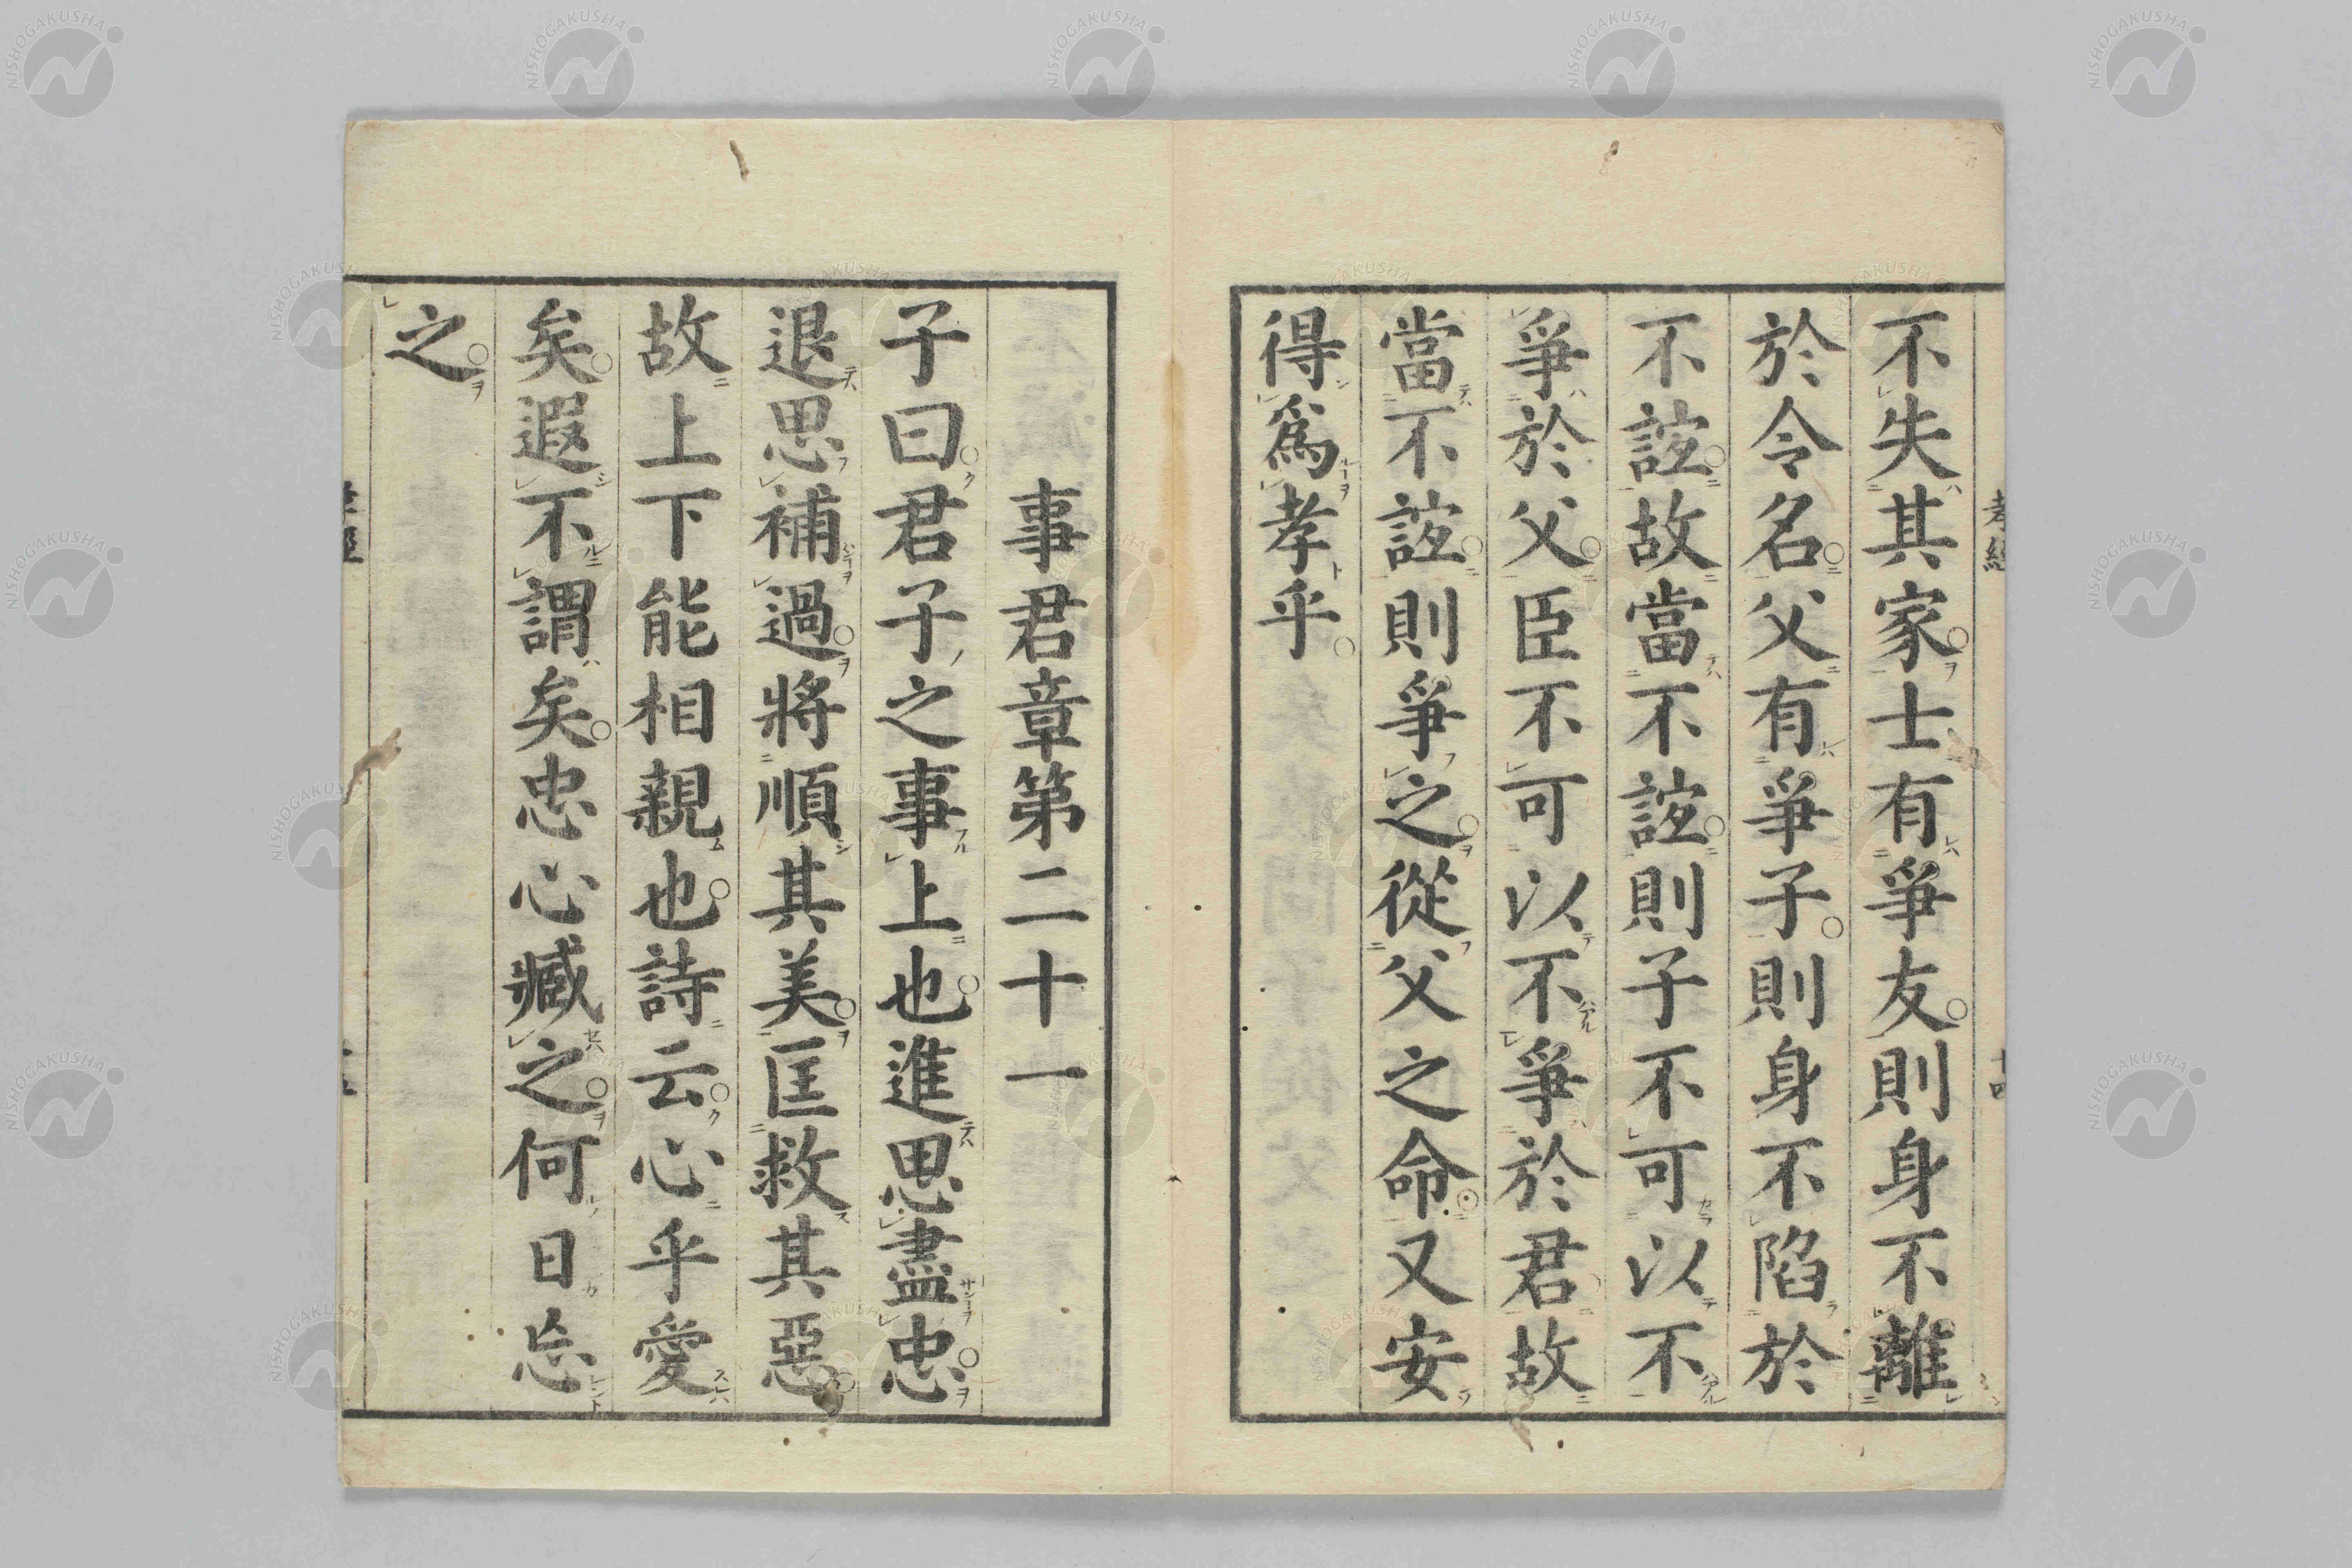 不失其家士有爭友則身不離
於令名父有爭子則身不陷於
不誼故當不誼則子不可以不
爭於父臣不可以不爭於君故
當不誼則爭之從父之命又安
得爲孝乎
事君章第二十一
子曰君子之事上也進思盡忠
退思補過將順其美匡救其惡
故上下能相親也詩云心乎愛
矣遐不謂矣忠心臧之何日忘
之